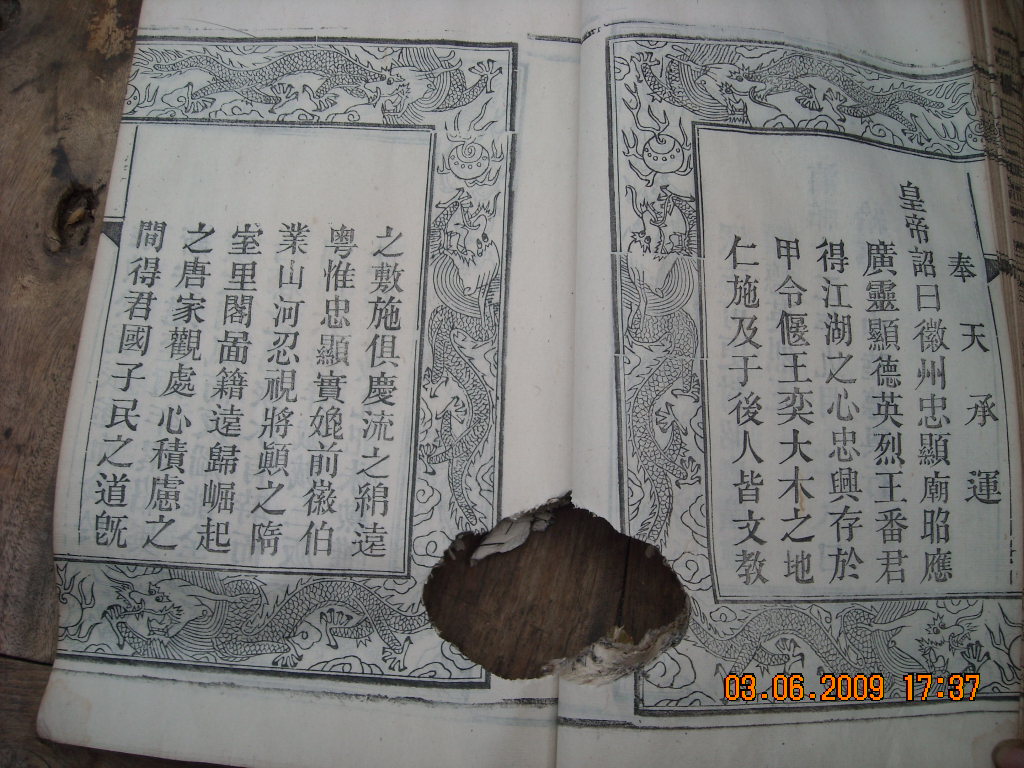 奉天承運
皇帝詔曰徽州忠顯廟昭應
廣靈顯德英烈王番君
得江湖之心忠興存於
甲令偃王奕大木之地
仁施及于後人皆文教
之敷施俱慶流之綿遠
粵惟忠顯實娩前徽伯
業山河忍視將顚之隋
室里閣啚籍遠歸崛起
之唐家觀處心積慮之
間得君國子民之道旣
03.06.2009 17:37